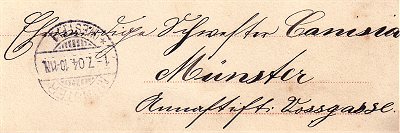 Ehrwürdige Schwester Camsia
Münster
Annastift. Vossgasse.
1.7.04.10-11N.